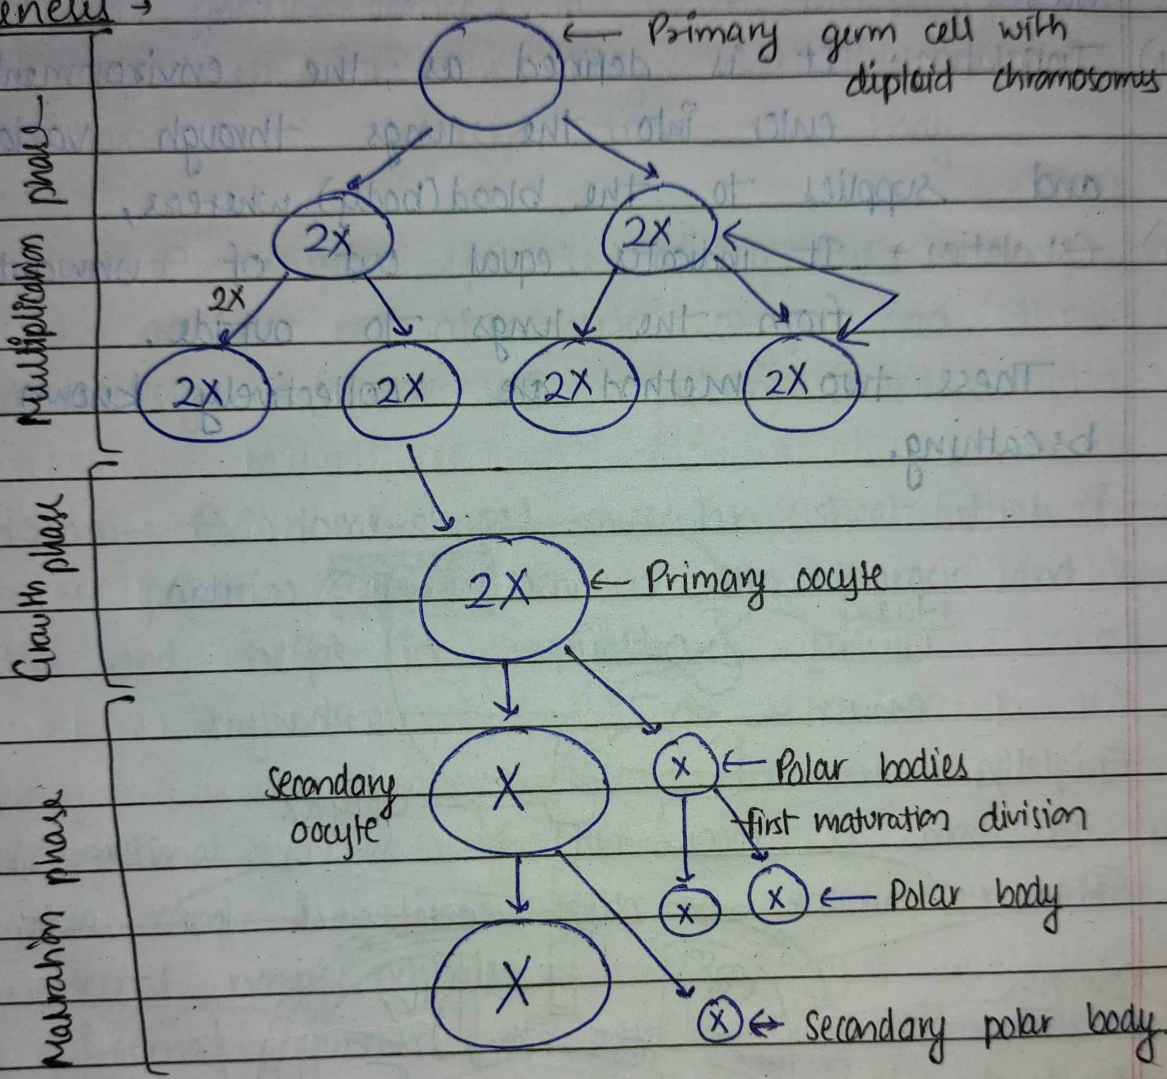 ← Primary germ cell with
diploid chromosomes
Multiplication phase
2X
2X
2X
2X
2X
2X
2X
Growth phase
2X ← Primary oocyte
Maturation phase
secondary
oocyte
X
X ← Polar bodies
first maturation division
X
X ← Polar body
X
X ← secondary polar body